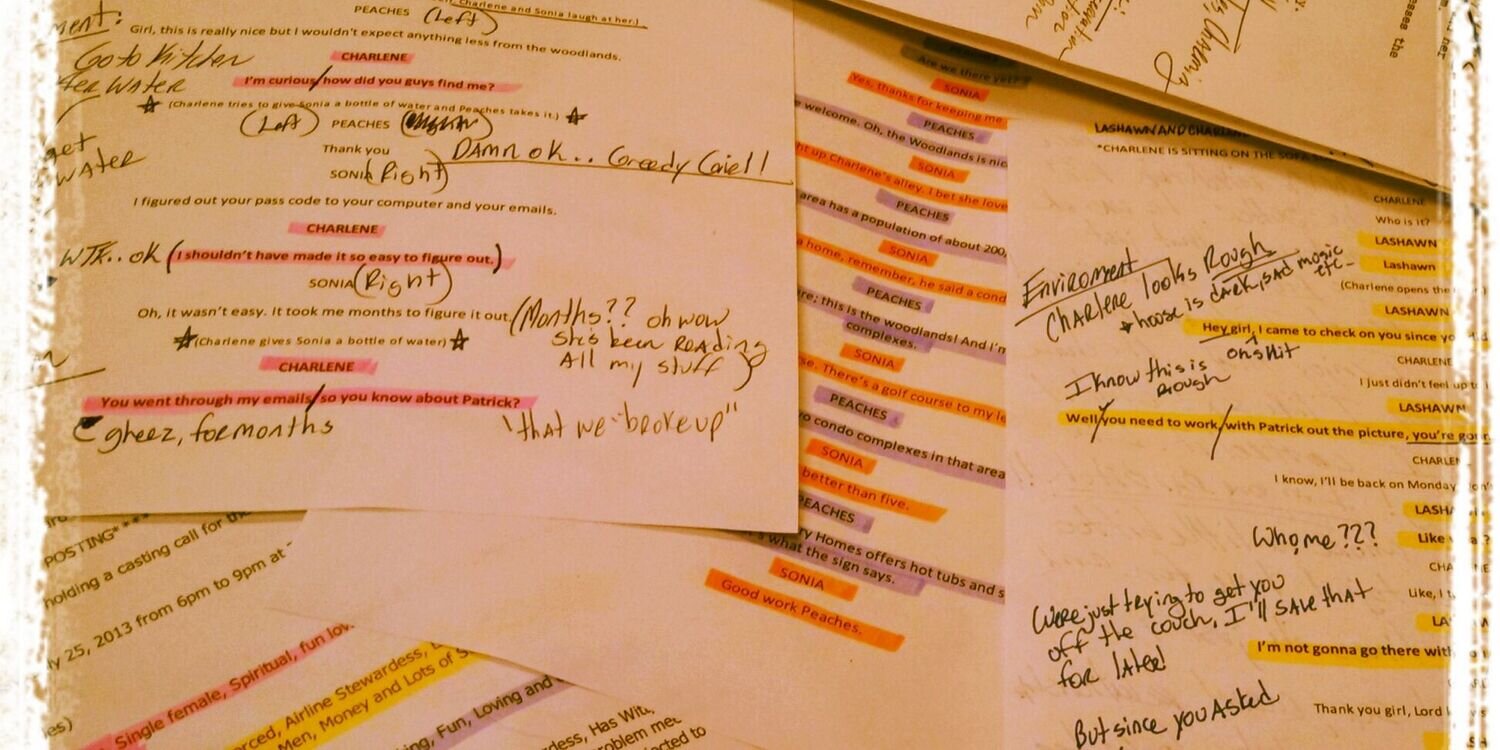 Charlene and Sonia laugh at her.)
PEACHES (Left)
Girl, this is really nice but I wouldn't expect anything less from the woodlands.
Go to Kitchen
CHARLENE
I'm curious/how did you guys find me?
WATER
(Charlene tries to give Sonia a bottle of water and Peaches takes it.)
(Left) PEACHES
Thank you
DAMN ok..
SONIA (Right)
get
WATER
I figured out your pass code to your computer and your emails.
CHARLENE
WTK.. ok (I shouldn't have made it so easy to figure out.)
SONIA (Right)
Oh, it wasn't easy. It took me months to figure it out.
(Months?? oh wow
She's been READing
All my stuff)
(Charlene gives Sonia a bottle of water)
CHARLENE
You went through my emails/so you know about Patrick?
gheez, for months
"that we broke up"
POSTING****
holding a casting call for the
25, 2013 from 6pm to 9pm at
Single female, Spiritual, fun
Airline Stewardess,
Men, Money and Lots of
Fun, Loving and
Has
problem
to
PEACHES
Are we there yet?
SONIA
Yes, thanks for keeping me
PEACHES
welcome. Oh, the Woodlands is nic
SONIA
up Charlene's alley. I bet she love
PEACHES
area has a population of about 200,
SONIA
a home, remember, he said a cond
PEACHES
this is the woodlands! And I'm
complexes.
SONIA
There's a golf course to my le
PEACHES
condo complexes in that area
SONIA
better than five.
PEACHES
Homes offers hot tubs and s
what the sign says.
SONIA
Good work Peaches.
the
LASHAWN AND
*CHARLENE IS SITTING ON THE SOFA
CHARLENE
Who is it?
LASHAWN
Lashawn
(Charlene opens the
Enviroment
Charlene looks Rough
*house is dark, sad music
etc
LASHAWN
Hey girl, I came to check on you since yo
oh shit
CHARLENE
I know this is
Rough
I just didn't feel up
LASHAWN
Well/you need to work/with Patrick out the picture, you're
CHARLEN
I know, I'll be back on Monday
LASHA
Who, me???
Like
CHA
Like, I
Were just trying to get you
off the couch, I'll SAVE that
for later
LA
I'm not gonna go there with
But since you Asked
Thank you girl, Lord